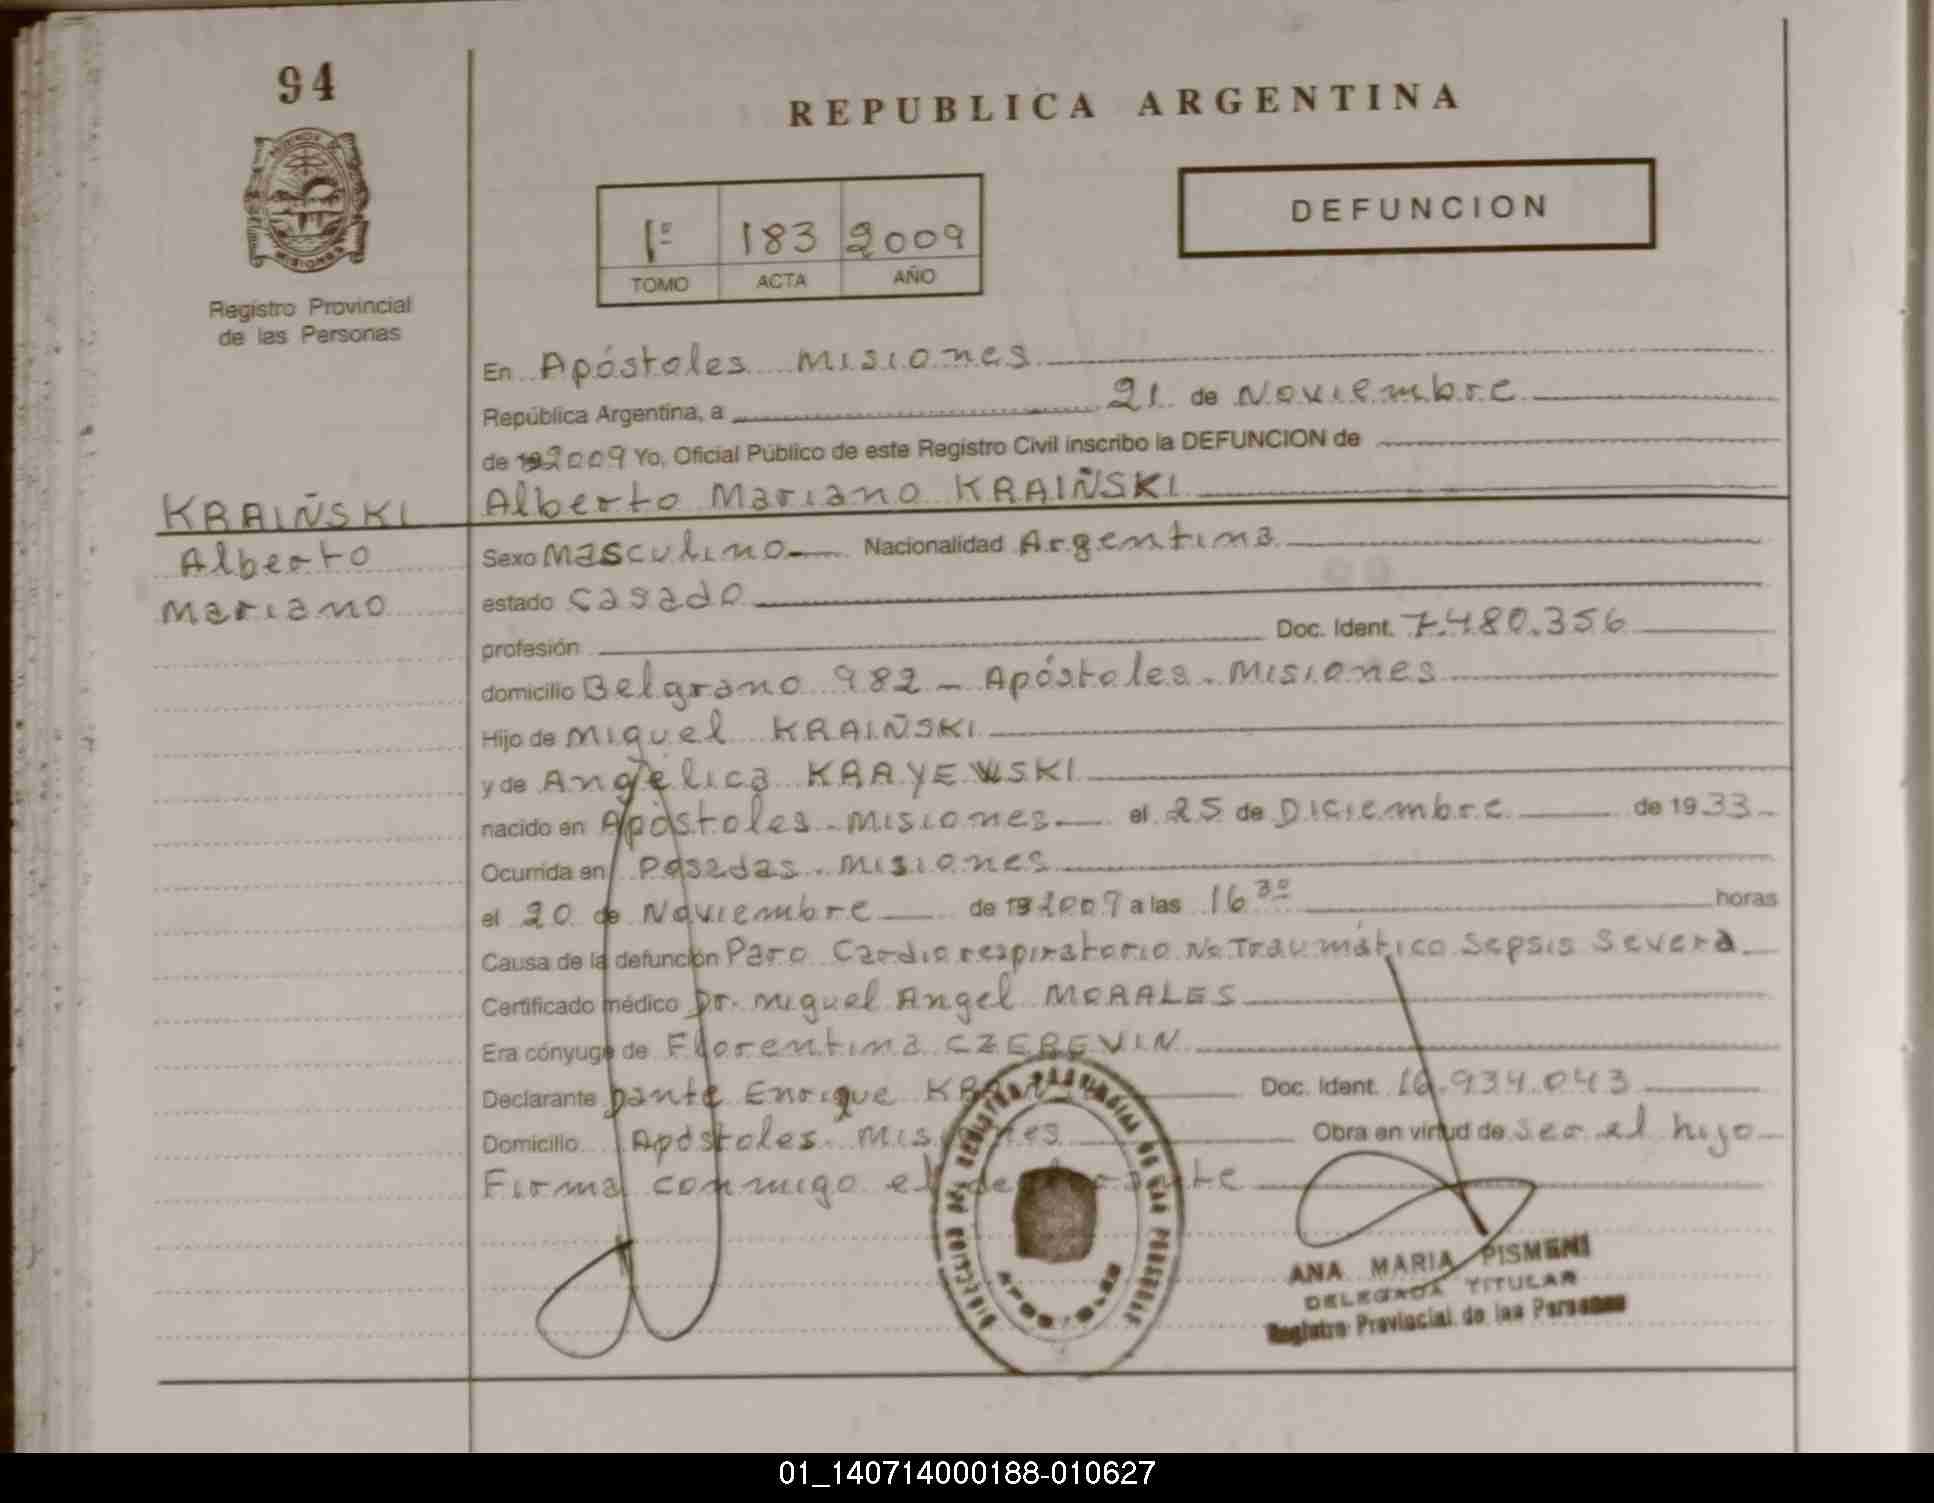 94
REPUBLICA ARGENTINA
DEFUNCION
1º 183 2009
TOMO ACTA AÑO
MISIONES
Registro Provincial
de las Personas
En Apóstoles Misiones
República Argentina, a 21 de Noviembre
de 192009 Yo, Oficial Público de este Registro Civil inscribo la DEFUNCION de
KRAIÑSKI
Alberto
Mariano
Alberto Mariano KRAIÑSKI
Sexo Masculino Nacionalidad Argentina
estado Casado
profesión Doc. Ident. 7.480.356
domicilio Belgrano 982 - Apóstoles - Misiones
Hijo de Miguel KRAIÑSKI
y de Angélica KRAYEWSKI
nacido en Apóstoles - Misiones el 25 de Diciembre de 1933
Ocurrida en Posadas - Misiones
el 20 de Noviembre de 192009 a las 16 30 horas
Causa de la defunción Paro Cardiorespiratorio No Traumático Sepsis Severa
Certificado médico Dr. Miguel Angel MORALES
Era cónyuge de Florentina CZEREVIN
Declarante Dante Enrique Doc. Ident. 16.934.043
Domicilio Apóstoles - Misiones Obra en virtud de ser el hijo
Firma conmigo el declarante
DIRECCION DEL REGISTRO PROVINCIAL DE LAS PERSONAS
APOSTOLES
ANA MARIA PISMENI
DELEGADA TITULAR
Registro Provincial de las Personas
01_140714000188-010627